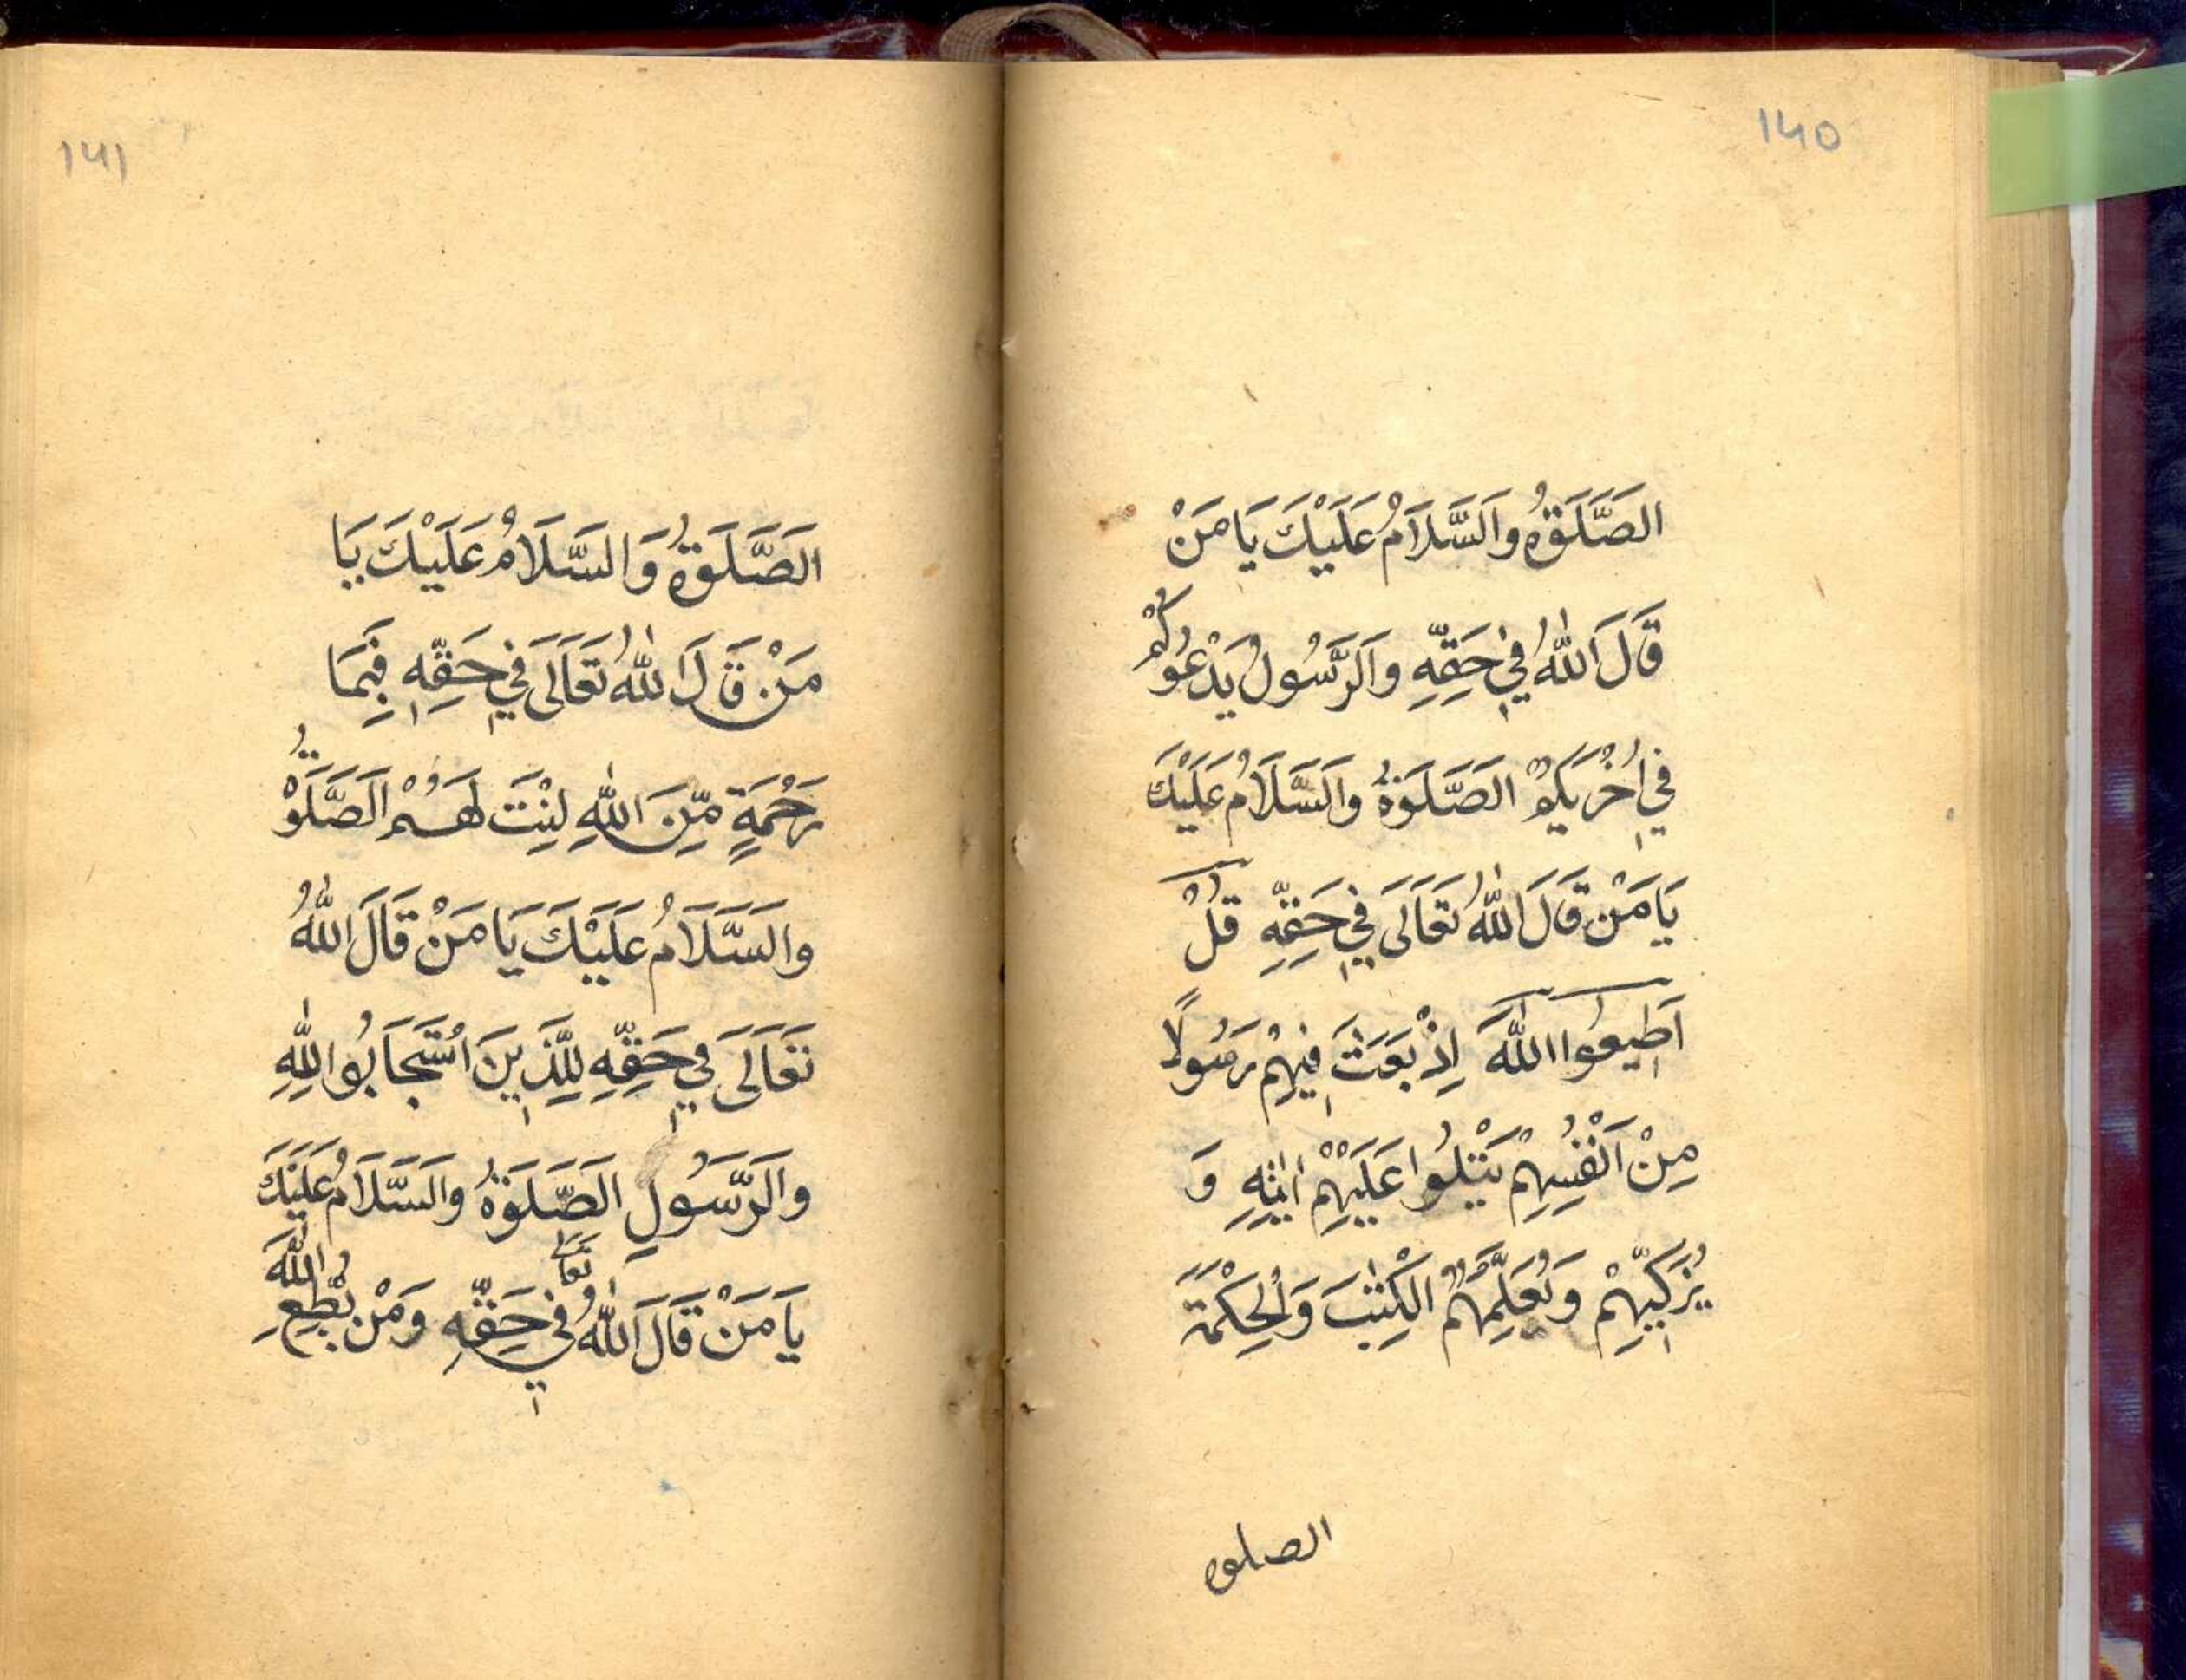 140
الصَّلَوةُ وَالسَّلَامُ عَلَيْكَ يَا مَنْ
قَالَ اللّٰهُ فِي حَقِّهِ وَالرَّسُولُ يَدْعُوكُمْ
فِي اُخْرٰىكُمْ الصَّلَوةُ وَالسَّلَامُ عَلَيْكَ
يَا مَنْ قَالَ اللّٰهُ تَعَالَى فِي حَقِّهِ قُلْ
اَطِيعُوا اللّٰهَ اِذْ بَعَثَ فِيهِمْ رَسُولًا
مِنْ اَنْفُسِهِمْ يَتْلُوا عَلَيْهِمْ اٰيٰتِهِ وَ
يُزَكِّيهِمْ وَيُعَلِّمُهُمُ الْكِتٰبَ وَالْحِكْمَةَ
الصلوه
141
الصَّلَوةُ وَالسَّلَامُ عَلَيْكَ يَا
مَنْ قَالَ اللّٰهُ تَعَالَى فِي حَقِّهِ فَبِمَا
رَحْمَةٍ مِّنَ اللّٰهِ لِنْتَ لَهُمْ الصَّلَوةُ
وَالسَّلَامُ عَلَيْكَ يَا مَنْ قَالَ اللّٰهُ
تَعَالَى فِي حَقِّهِ لِلَّذِينَ اسْتَجَابُوا لِلّٰهِ
وَالرَّسُولِ الصَّلَوةُ وَالسَّلَامُ عَلَيْكَ
يَا مَنْ قَالَ اللّٰهُ تَعَالَى فِي حَقِّهِ وَمَنْ يُطِعِ اللّٰهَ